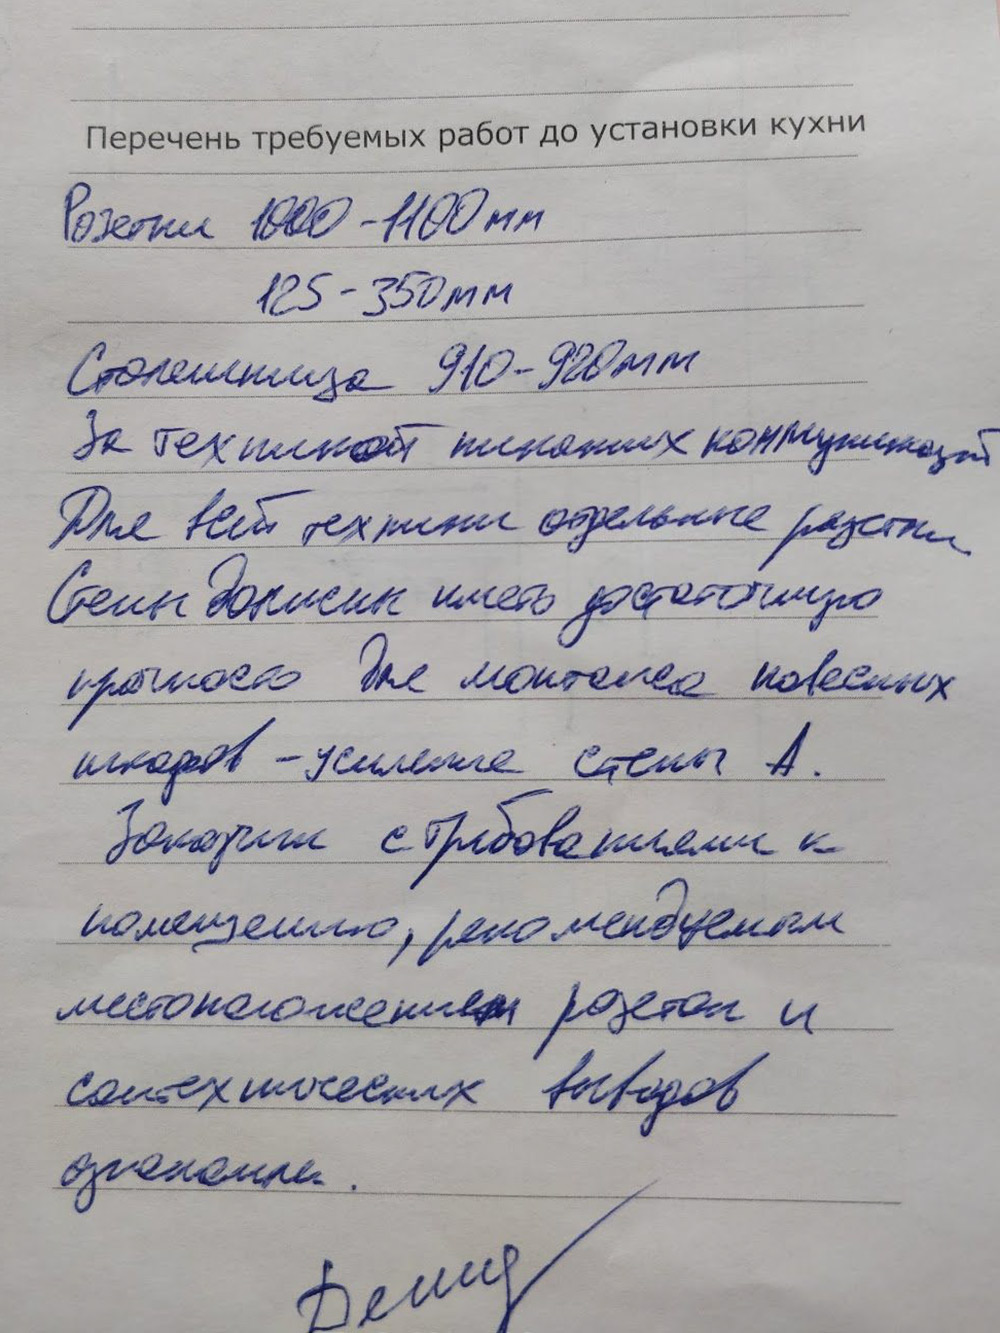 Перечень требуемых работ до установки кухни
Розетки 1000-1100мм
125-350мм
Столешница 910-920мм
За техникой никаких коммуникаций
Для всей техники отдельные розетки
Стены должны иметь достаточную
прочность для монтажа навесных
шкафов - усиление стены А.
Заказчик с требованиями к
помещению, рекомендуемым
местоположением розеток и
сантехнических выводов
ознакомлен.